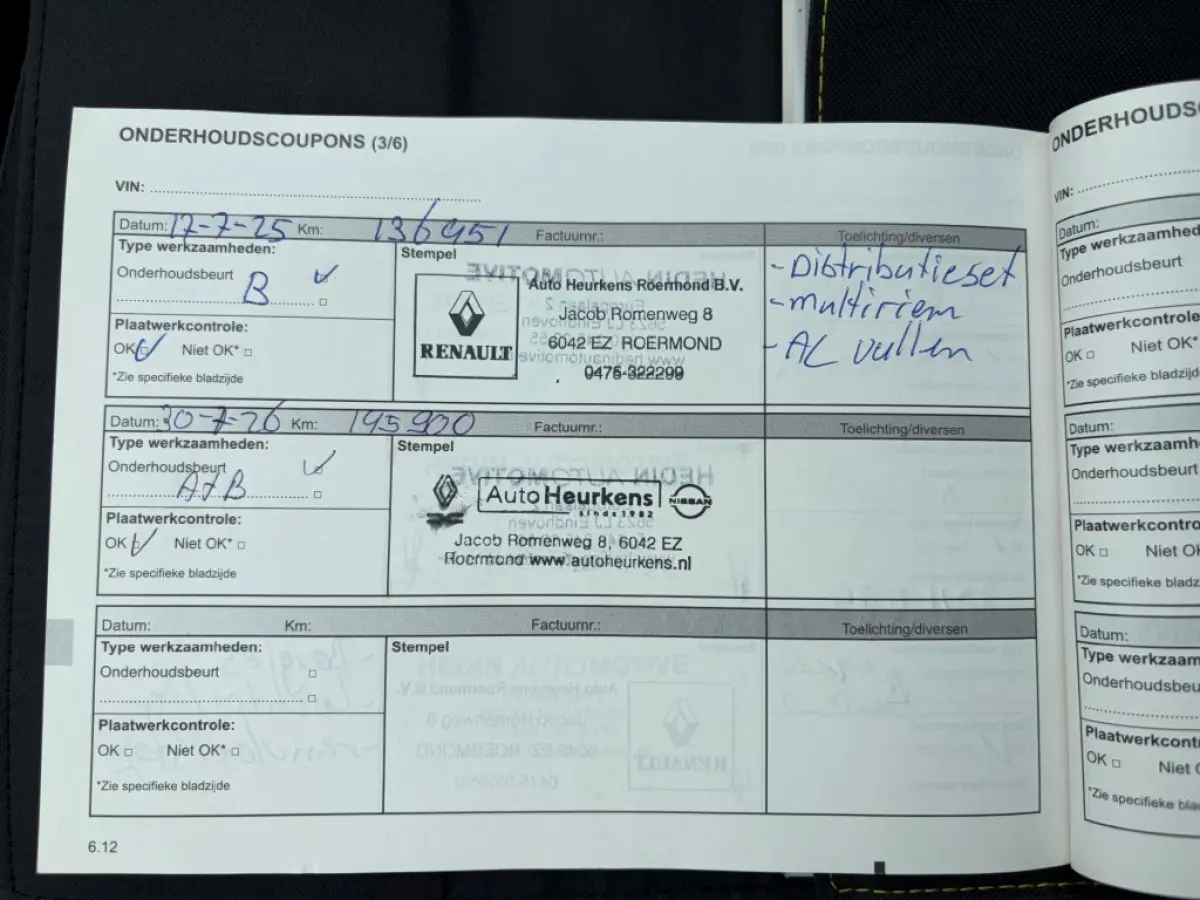 ONDERHOUDSCOUPONS (3/6)
VIN:
Datum: 17-7-25 Km: 136951 Factuurnr.: Toelichting/diversen
Type werkzaamheden:
Onderhoudsbeurt
B
Plaatwerkcontrole:
OK Niet OK*
*Zie specifieke bladzijde
Stempel
RENAULT
Auto Heurkens Roermond B.V.
Jacob Romenweg 8
6042 EZ ROERMOND
0475-322299
- Distributieset
- multiriem
- AC vullen
Datum: 30-7-26 Km: 145900 Factuurnr.: Toelichting/diversen
Type werkzaamheden:
Onderhoudsbeurt
A+B
Plaatwerkcontrole:
OK Niet OK*
*Zie specifieke bladzijde
Stempel
Auto Heurkens
sinds 1982
NISSAN
Jacob Romenweg 8, 6042 EZ
Roermond www.autoheurkens.nl
Datum: Km: Factuurnr.: Toelichting/diversen
Type werkzaamheden:
Onderhoudsbeurt
Plaatwerkcontrole:
OK Niet OK*
*Zie specifieke bladzijde
Stempel
6.12
ONDERHOUDSC
VIN:
Datum:
Type werkzaamhed
Onderhoudsbeurt
Plaatwerkcontrole
OK Niet OK*
*Zie specifieke bladzijd
Datum:
Type werkzaamh
Onderhoudsbeurt
Plaatwerkcontro
OK Niet OK
*Zie specifieke bladz
Datum:
Type werkzaam
Onderhoudsbeu
Plaatwerkcontr
OK Niet O
*Zie specifieke bla